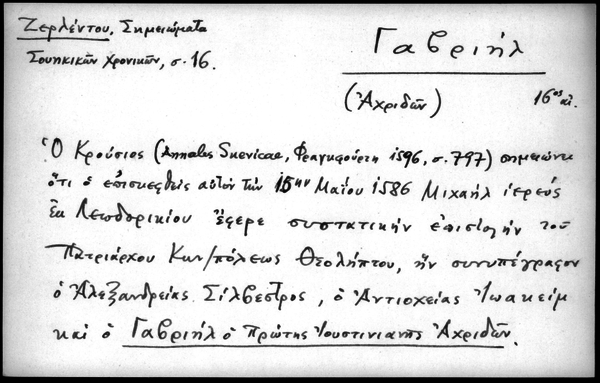 Ζερλέντου, Σημειώματα
Σουηκικῶν χρονικῶν, σ. 16.
Γαβριήλ
(Ἀχριδῶν)
16ος αἰ.
Ὁ Κρούσιος (Annales Suevicae, Φραγκφούρτη 1596, σ. 797) σημειώνει
ὅτι ὁ ἐπισκεφθεὶς αὐτὸν τὴν 15ην Μαΐου 1586 Μιχαήλ ἱερεὺς
ἐκ Λεωδορικίου ἔφερε συστατικὴν ἐπιστολὴν τοῦ
Πατριάρχου Κων/πόλεως Θεολήπτου, ἣν συνυπέγραφον
ὁ Ἀλεξανδρείας Σίλβεστρος, ὁ Ἀντιοχείας Ἰωακείμ
καὶ ὁ Γαβριήλ ὁ Πρώτης Ἰουστινιανῆς Ἀχριδῶν.